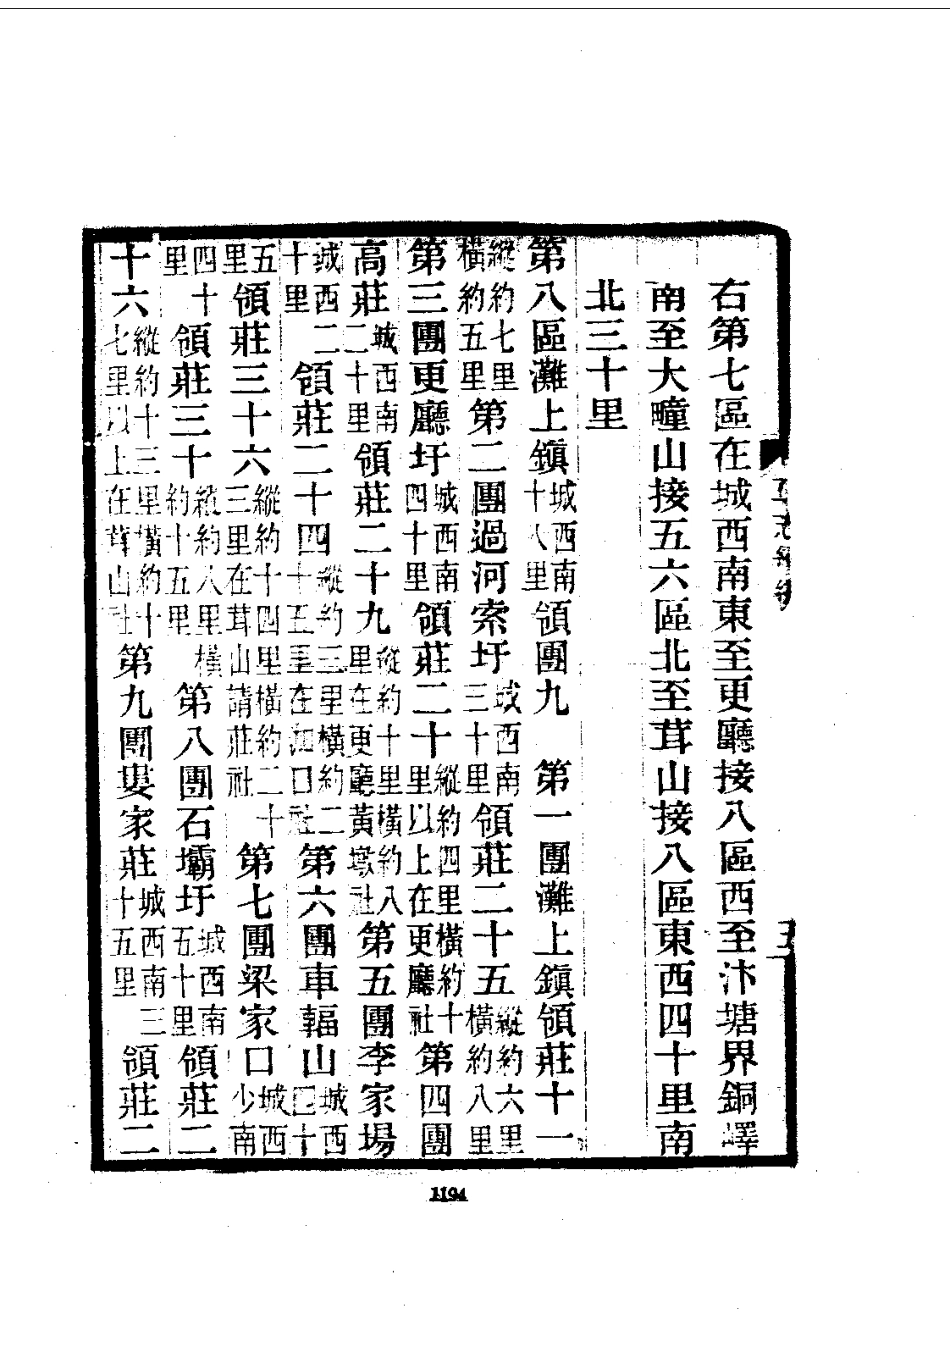 右第七區在城西南東至更廳接八區西至汴塘界銅嶧
南至大疃山接五六區北至茸山接八區東西四十里南
北三十里
第八區灘上鎮城西南十八里領團九　第一團灘上鎮領莊十一
縱約七里橫約五里第二團過河索圩城西南三十里領莊二十五縱約六里橫約八里
第三團更廳圩城西南四十里領莊二十縱約四里橫約十里以上在更廳社第四團
高莊城西南二十里領莊二十九縱約十里橫約八里在更廳黃墩社第五團李家場
城西二十里領莊二十四縱約三里橫約二十五里在泇口社第六團車輻山城西四十
五里領莊三十六縱約十四里橫約二十三里在茸山請莊社第七團梁家口城西少南
四十里領莊三十縱約八里橫約十五里第八團石壩圩城西南五十里領莊二
十六縱約十三里橫約十七里以上在茸山社第九團婁家莊城西南三十五里領莊二
五
1194